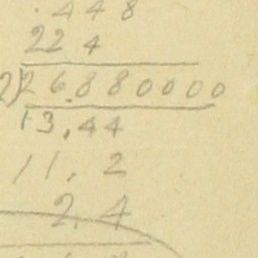 .448
224
2)26.880000
13.44
11.2
2.4